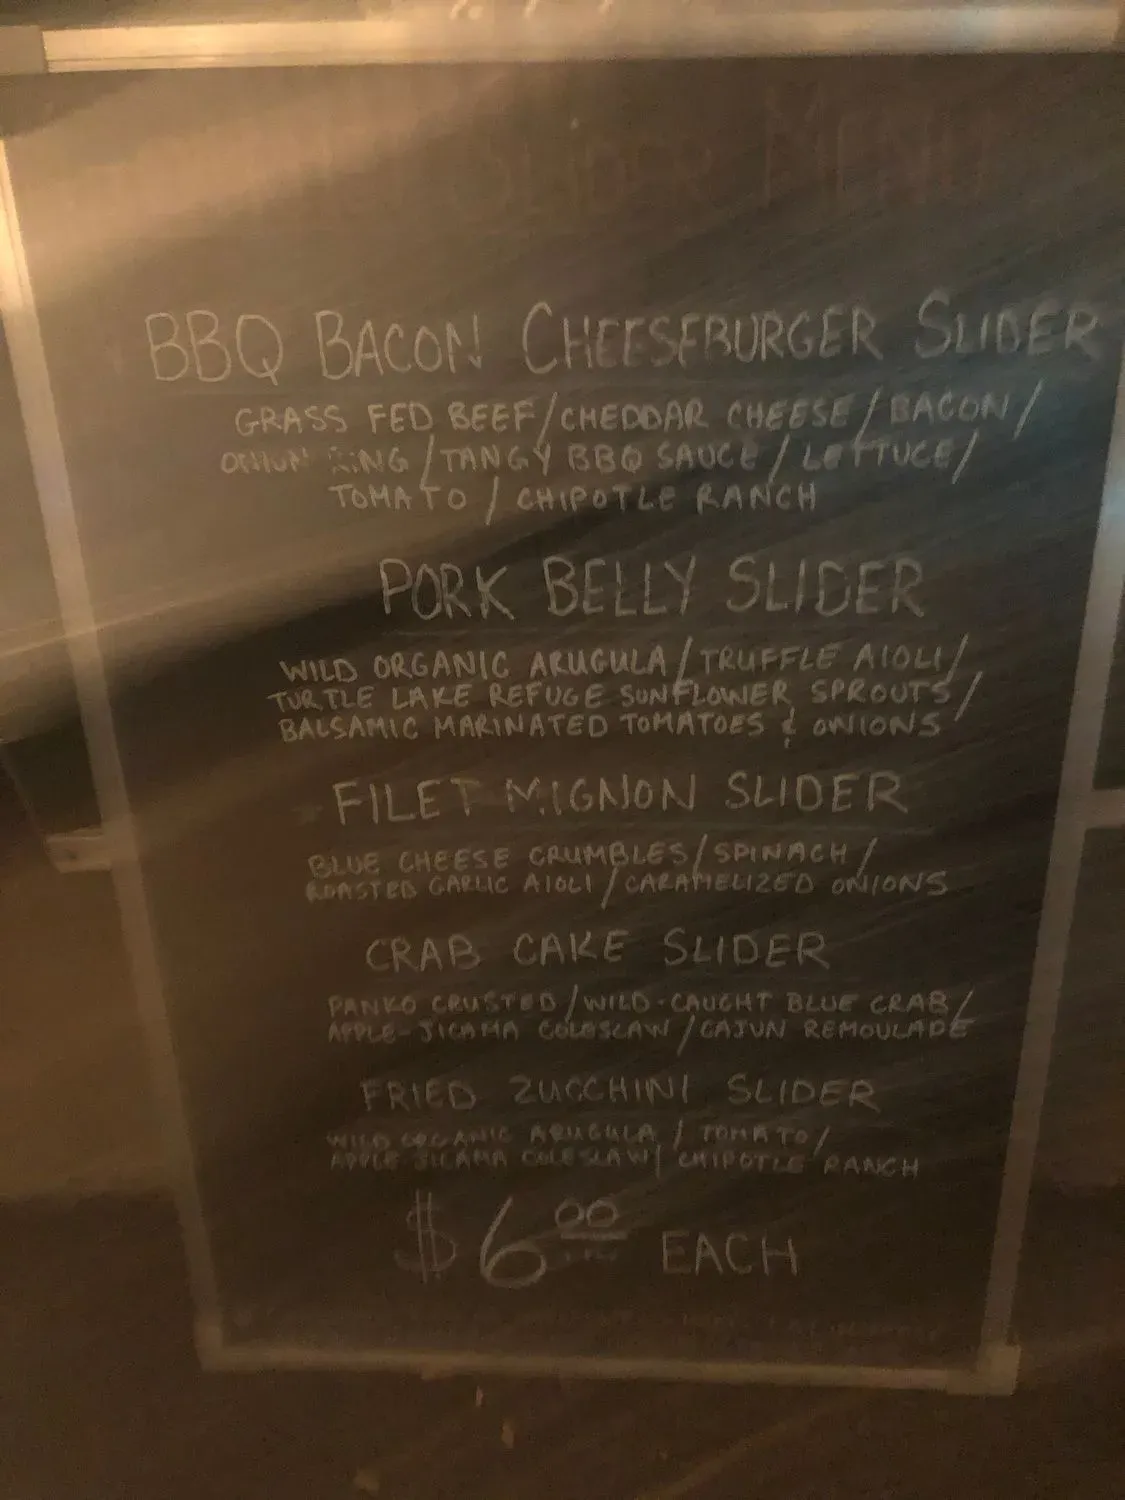 SLIDER MENU
BBQ BACON CHEESEBURGER SLIDER
GRASS FED BEEF/CHEDDAR CHEESE/BACON/
ONION RING/TANGY BBQ SAUCE/LETTUCE/
TOMATO/CHIPOTLE RANCH
PORK BELLY SLIDER
WILD ORGANIC ARUGULA/TRUFFLE AIOLI/
TURTLE LAKE REFUGE SUNFLOWER SPROUTS/
BALSAMIC MARINATED TOMATOES & ONIONS
FILET MIGNON SLIDER
BLUE CHEESE CRUMBLES/SPINACH/
ROASTED GARLIC AIOLI/CARAMELIZED ONIONS
CRAB CAKE SLIDER
PANKO CRUSTED/WILD-CAUGHT BLUE CRAB/
APPLE-JICAMA COLESLAW/CAJUN REMOULADE
FRIED ZUCCHINI SLIDER
WILD ORGANIC ARUGULA/TOMATO/
APPLE JICAMA COLESLAW/CHIPOTLE RANCH
$6.00 EACH